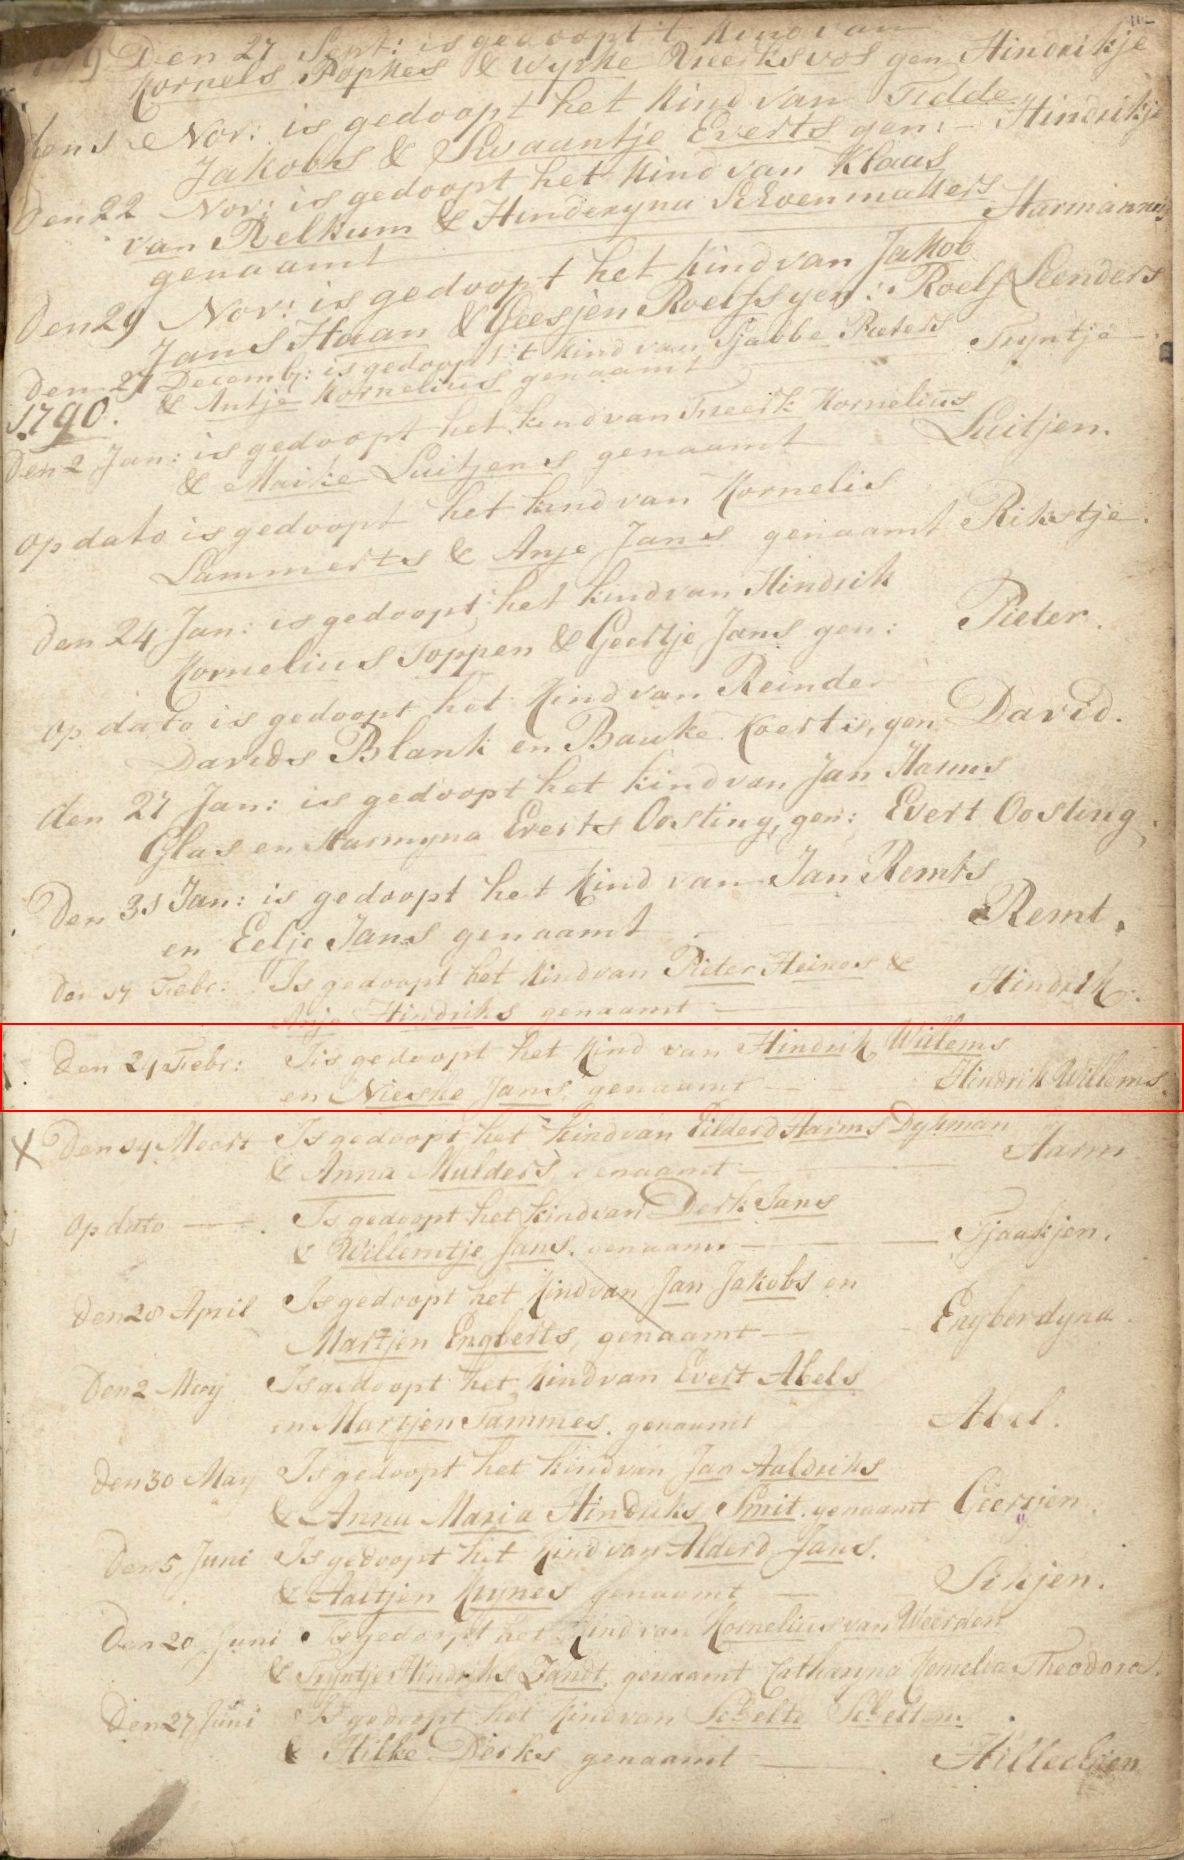 Den 27 Sept: is gedoopt 't kind van
Kornels Popkes & Wypke Meerks vos gen Hindrikje
den 1 Nov: is gedoopt het kind van Tedde
Jakobs & Swaantje Everts gen: Hindrikje
Den 22 Nov: is gedoopt het kind van Klaas
van Relkum & Hinderyna Schoenmakers
genaamt Harmannus
Den 29 Nov: is gedoopt het kind van Jakob
Jans Haan & Geesjen Roelfs gen: Roelf Leenders
Den 27 Decemb: is gedoopt 't kind van Sjabbe Pieters
& Antje Kornelius genaamt Tryntje
1790.
Den 2 Jan: is gedoopt het kind van Meerk Kornelius
& Maike Luitjens genaamt Luitjen.
op dato is gedoopt het kind van Kornelis
Lammerts & Anje Jans genaamt Rikstje.
Den 24 Jan: is gedoopt het kind van Hindrik
Kornelius Toppen & Geertje Jans gen: Pieter.
op dato is gedoopt het kind van Reinder
Davids Blank en Bauke Koerts, gen David.
den 27 Jan: is gedoopt het kind van Jan Harms
Glas en Harmyna Everts Oosting, gen: Evert Oosting
Den 31 Jan: is gedoopt het kind van Jan Remts
en Eelje Jans genaamt Remt.
Den 17 Febr: Is gedoopt het kind van Pieter Heines &
Anje Hindriks genaamt Hindrik.
Den 21 Febr: Is gedoopt het kind van Hindrik Willems
en Nieske Jans, genaamt Hindrik Willems.
Den 14 Meert Is gedoopt het kind van Eilderd Harms Dykman
& Anna Mulders, genaamt Harm
op dato Is gedoopt het kind van Derk Jans
& Willemtje Jans. genaamt Tjaakjen.
Den 28 April Is gedoopt het kind van Jan Jakobs en
Martjen Engberts, genaamt Engberdyna
Den 2 Mey Is gedoopt het kind van Evert Abels
en Martjen Tammes. genaamt Abel.
Den 30 May Is gedoopt het kind van Jan Aaldriks
& Anna Maria Hindriks Smit. genaamt Geertjen.
Den 5 Juni Is gedoopt het kind van Alderd Jans.
& Aaltjen Krynes genaamt Sikjen.
Den 20 Juni Is gedoopt het kind van Kornelius van Weerden
& Tryntje Hindriks Zandt, genaamt Catharyna Kornelia Theodora.
Den 27 Juni Is gedoopt het kind van Schelte Scheltens
& Hilke Derks genaamt Hillechien